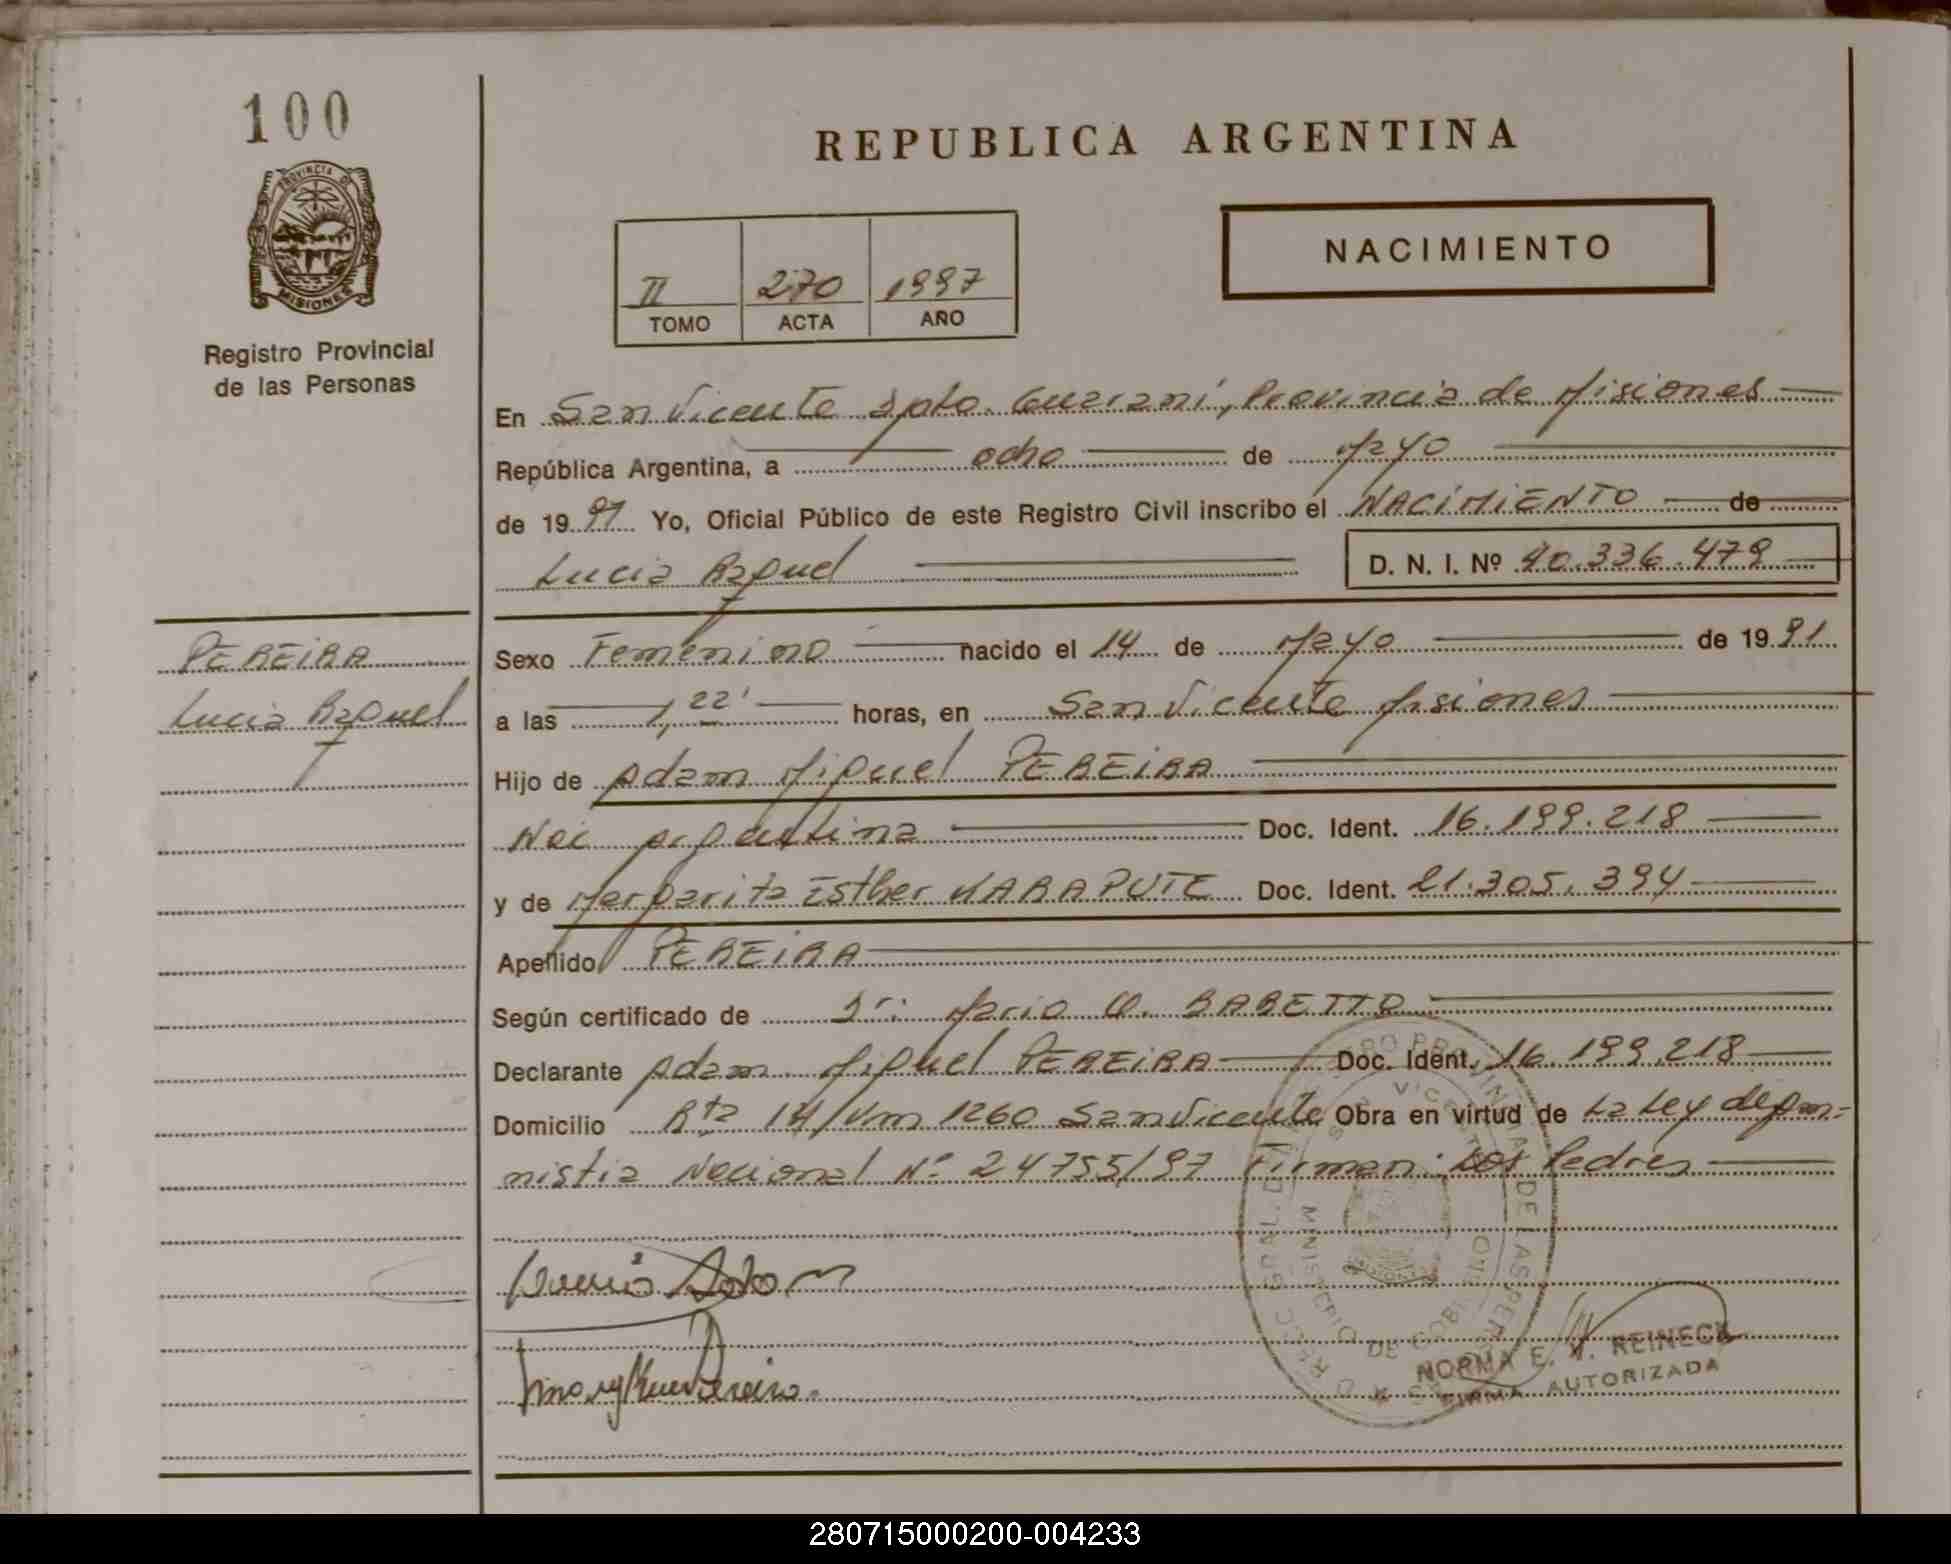 100
REPUBLICA ARGENTINA
PROVINCIA DE
MISIONES
Registro Provincial
de las Personas
NACIMIENTO
II 270 1997
TOMO ACTA AÑO
En San Vicente Dpto. Guaraní, Provincia de Misiones
República Argentina, a ocho de Mayo
de 1997 Yo, Oficial Público de este Registro Civil inscribo el NACIMIENTO de
Lucia Raquel D. N. I. Nº 40.336.479
PEREIRA
Lucia Raquel
Sexo Femenino nacido el 14 de Mayo de 1991
a las 1,22' horas, en San Vicente Misiones
Hijo de Adam Miguel PEREIRA
Nac argentina Doc. Ident. 16.199.218
y de Margarita Esther KARAPUTE Doc. Ident. 21.305.394
Apellido PEREIRA
Según certificado de Dr. Mario O. BARETTO
Declarante Adam Miguel PEREIRA Doc. Ident. 16.199.218
Domicilio Rta 14/Km 1260 San Vicente Obra en virtud de La Ley de am-
nistia Nacional Nº 24755/97 Firman: Los Padres
NORMA E. V. REINECK
FIRMA AUTORIZADA
280715000200-004233